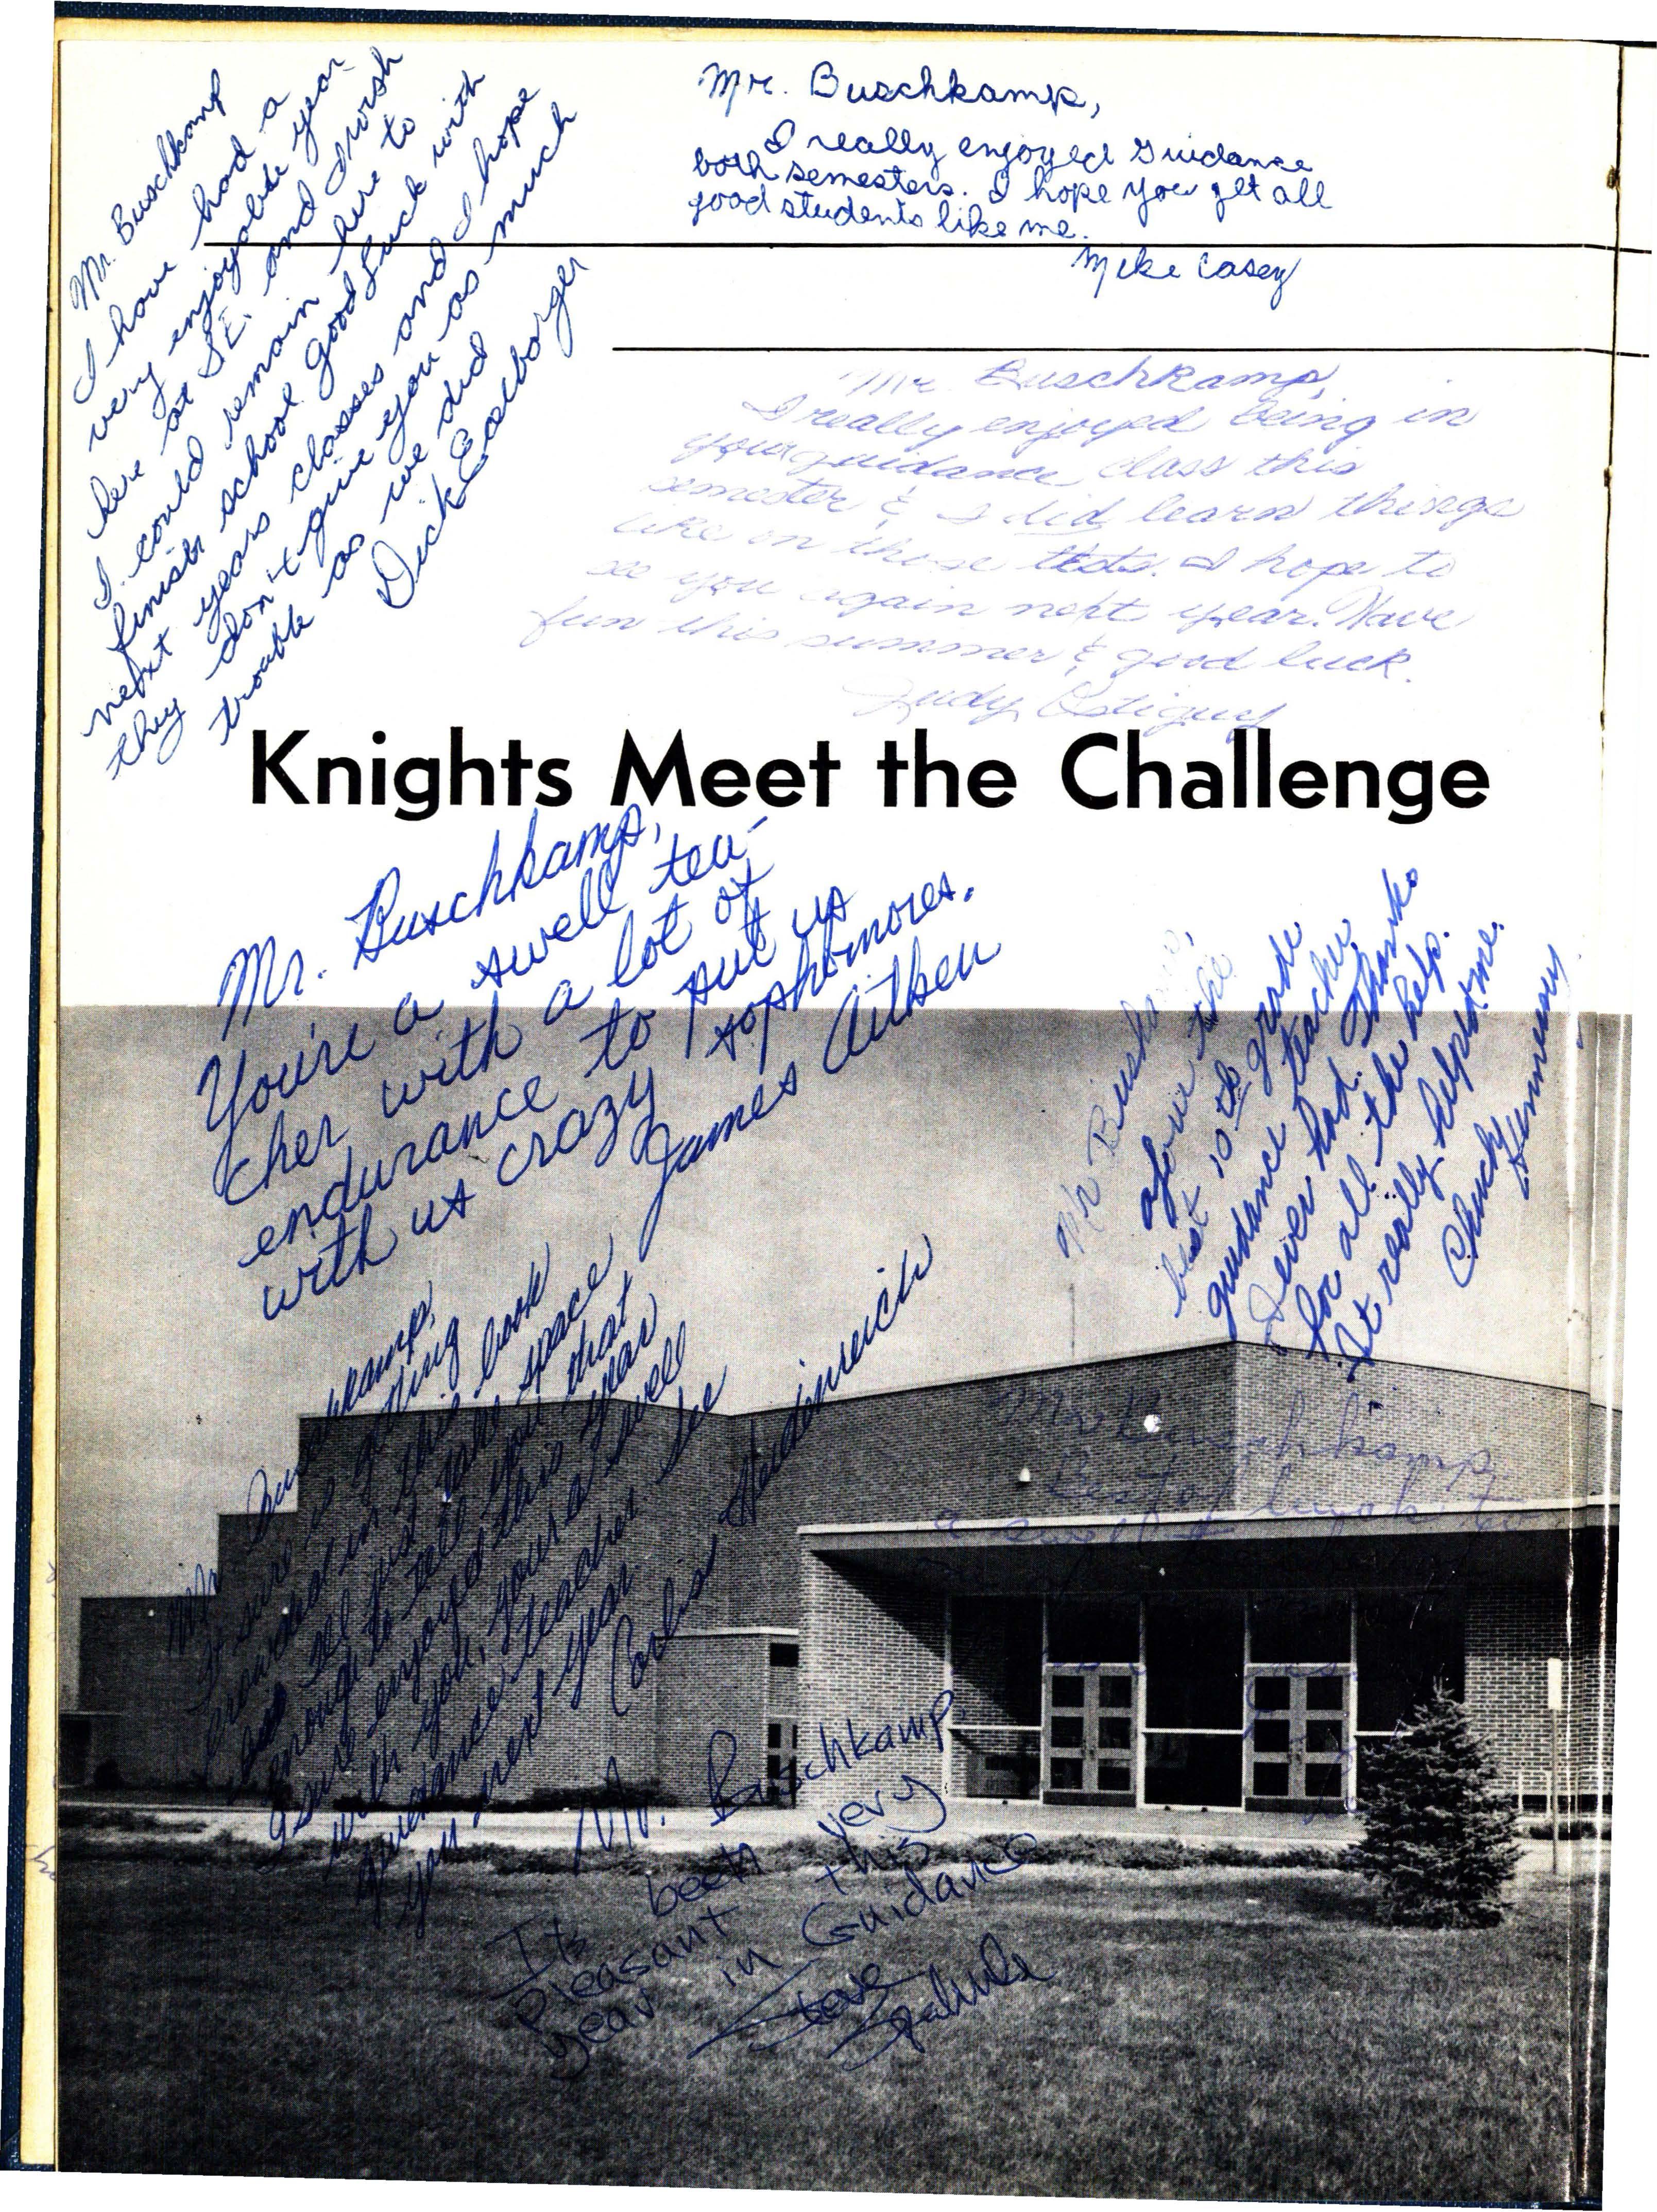 Mr. Buschkamp
I have had a
very enjoyable year
here at S.E. and I wish
I could remain here to
finish school. Good Luck with
next years classes and I hope
they don't give you as much
trouble as we did
Dick
Mr. Buschkamp,
I really enjoyed Guidance
both semesters. I hope you get all
good students like me.
Mike Casey
Mr. Buschkamp,
I really enjoyed being in
your guidance class this
semester & I did learn things
like in those tests. I hope to
see you again next year. Have
fun this summer & good luck.
Judy
Knights Meet the Challenge
Mr. Buschkamp,
You're a swell tea-
cher with a lot of
endurance to put up
with us crazy sophomores.
James Aitken
Mr
of our the
best 10th grade
guidance teacher
I ever had. Thanks
for all the help.
It really helped me.
Chuck Hennessy
Mr
It sure is getting
crowded in this book
I'll just take space
enough to tell you that
I sure enjoyed this year
with you, your a swell
guidance teacher see
you next year
Heidenreich
Mr Buschkamp
Best of luck to
a swell
Mr. Buschkamp
Its been very
Pleasant this
year in Guidance
Steve